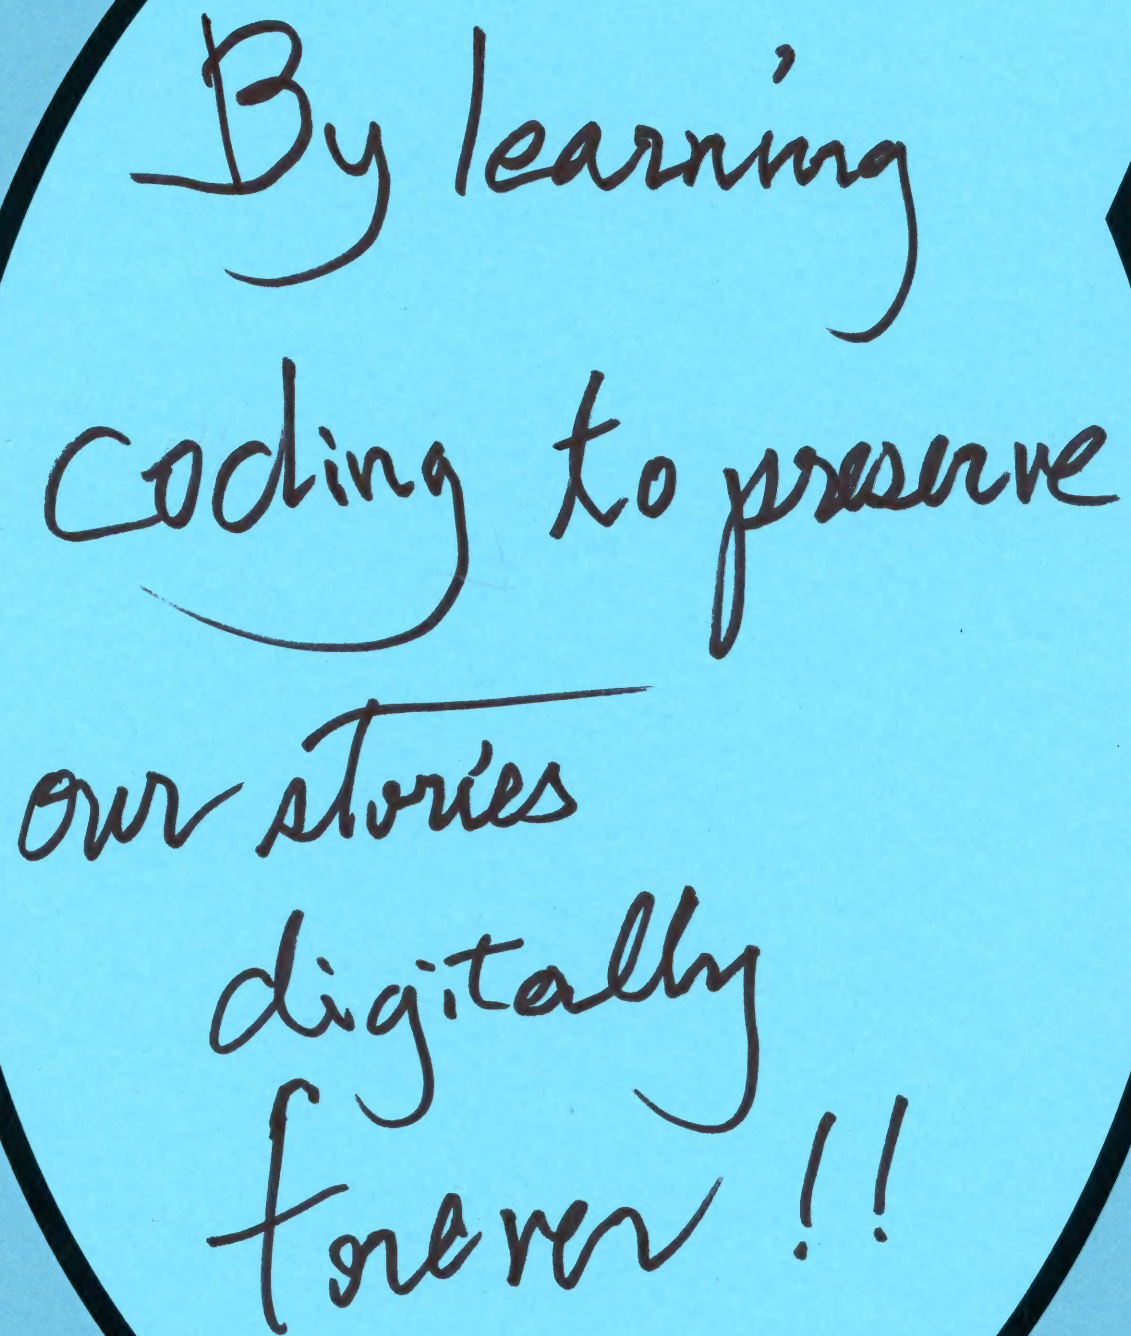 By learning
coding to preserve
our stories
digitally
forever !!